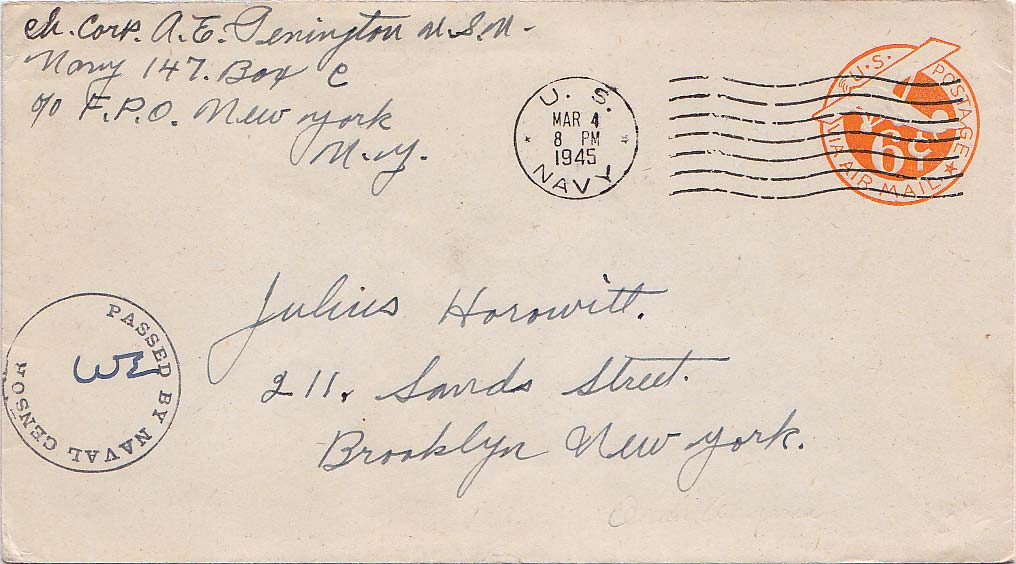 Ch. Corp. A. E. Penington U.S.N-
Navy 147. Box C
c/o F.P.O. New York
N.Y.
U. S.
MAR 4
8 PM
1945
NAVY
U.S. POSTAGE
6¢
VIA AIR MAIL
PASSED BY NAVAL CENSOR
Julius Horowitt.
211. Sands Street.
Brooklyn New York.